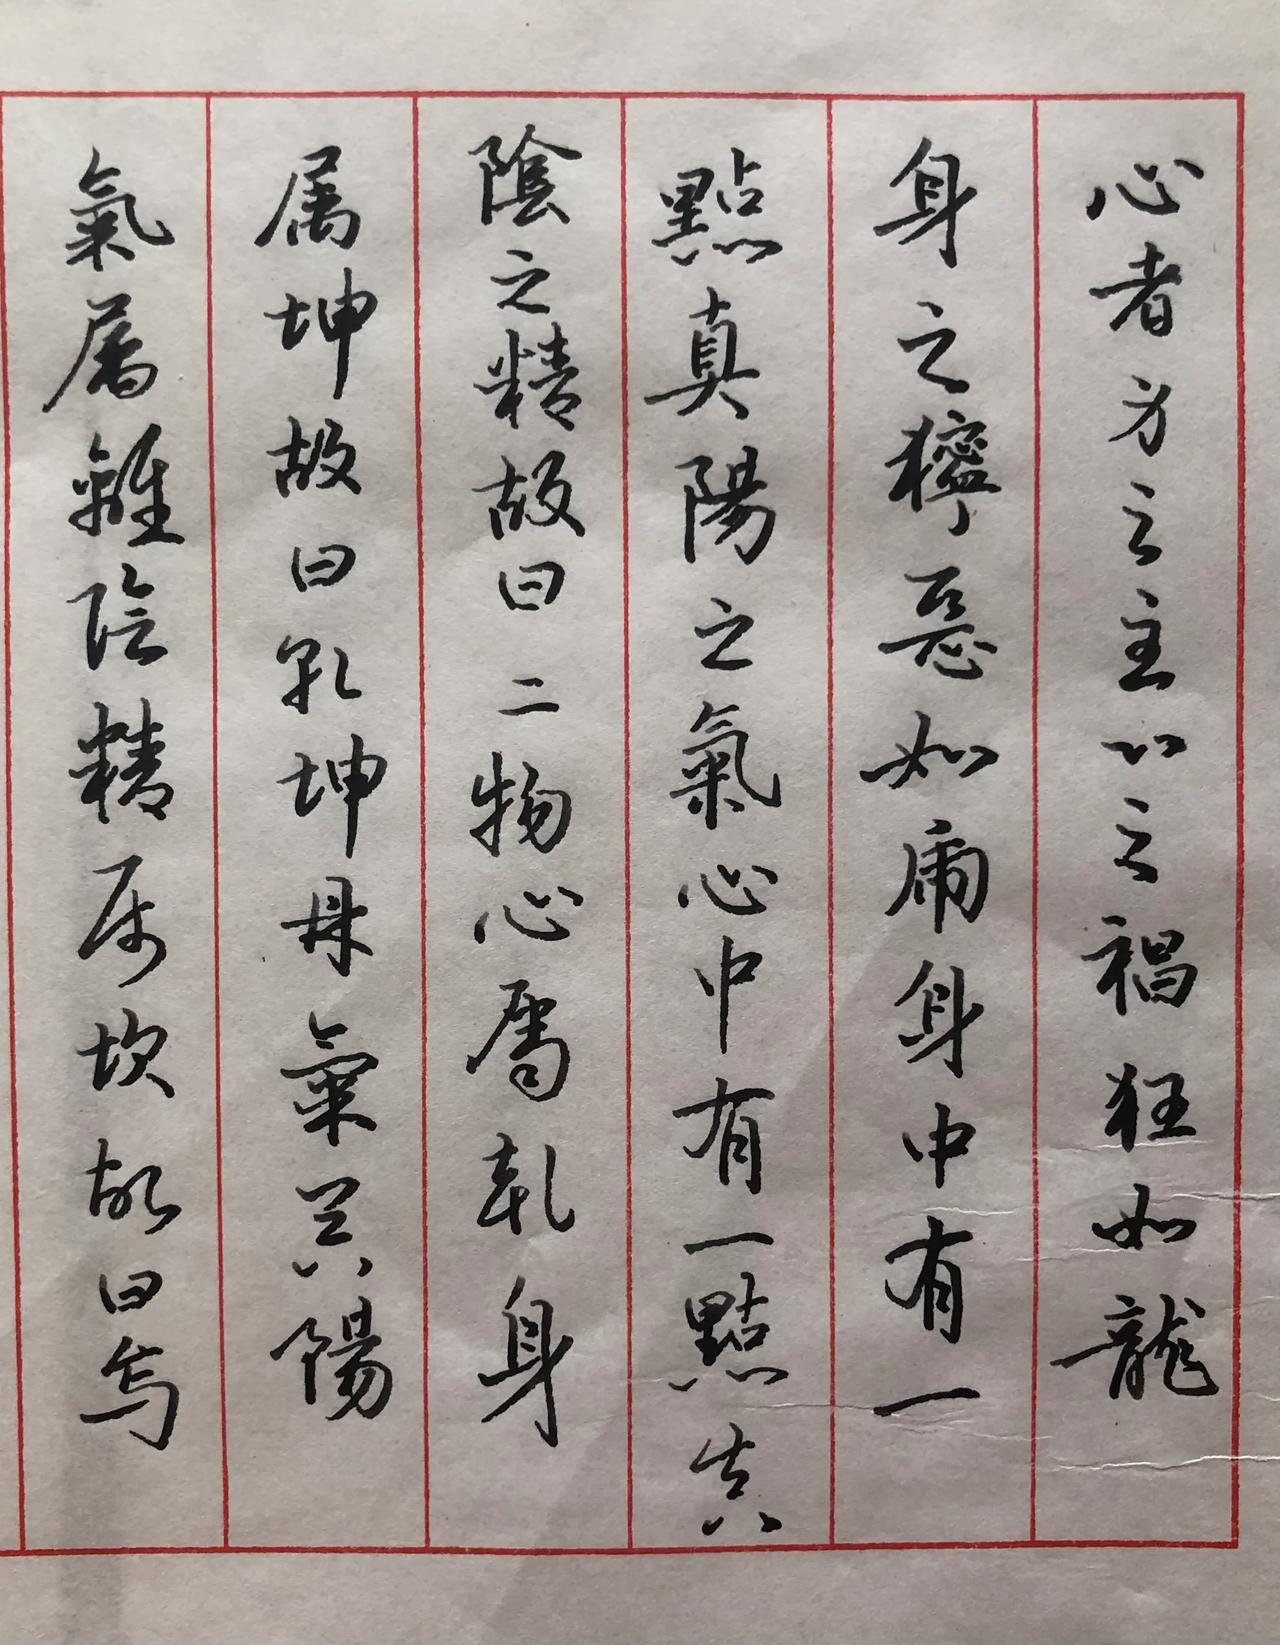 心者方之主心之猖狂如龍
身之獰惡如虎身中有一
點真陽之氣心中有一點真
陰之精故曰二物心屬乾身
属坤故曰乾坤氣陽
氣屬離陰精属坎故曰烏